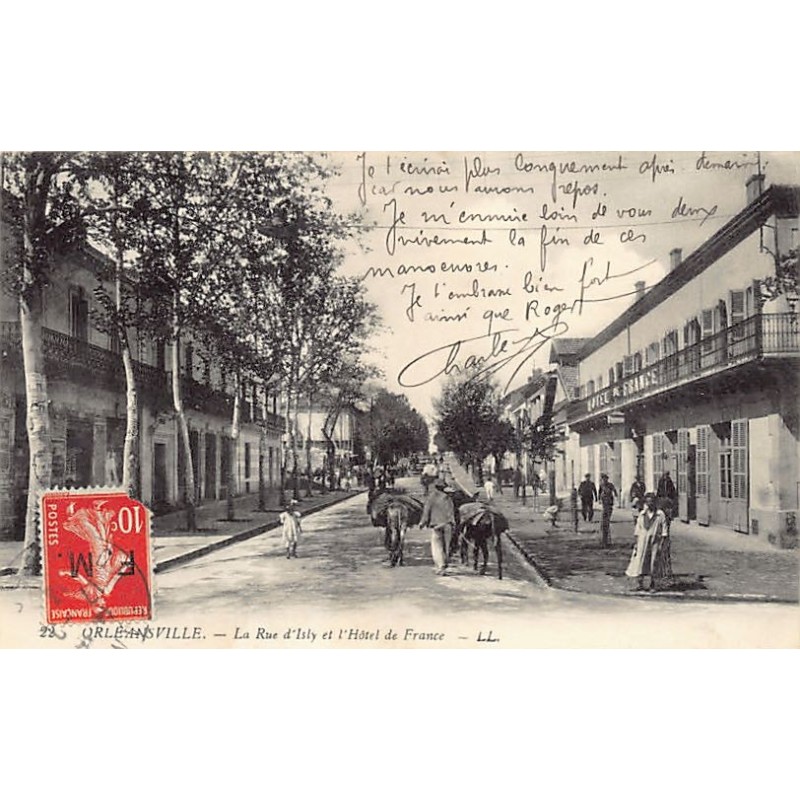 Je t'écrirai plus longuement après demain,
car nous aurons repos.
Je m'ennuie loin de vous deux
vivement la fin de ces
manoeuvres.
Je t'embrasse bien fort
ainsi que Roger
Charles
HOTEL DE FRANCE
10c
POSTES
F.M.
REPUBLIQUE FRANÇAISE
22 ORLÉANSVILLE. — La Rue d'Isly et l'Hôtel de France — LL.